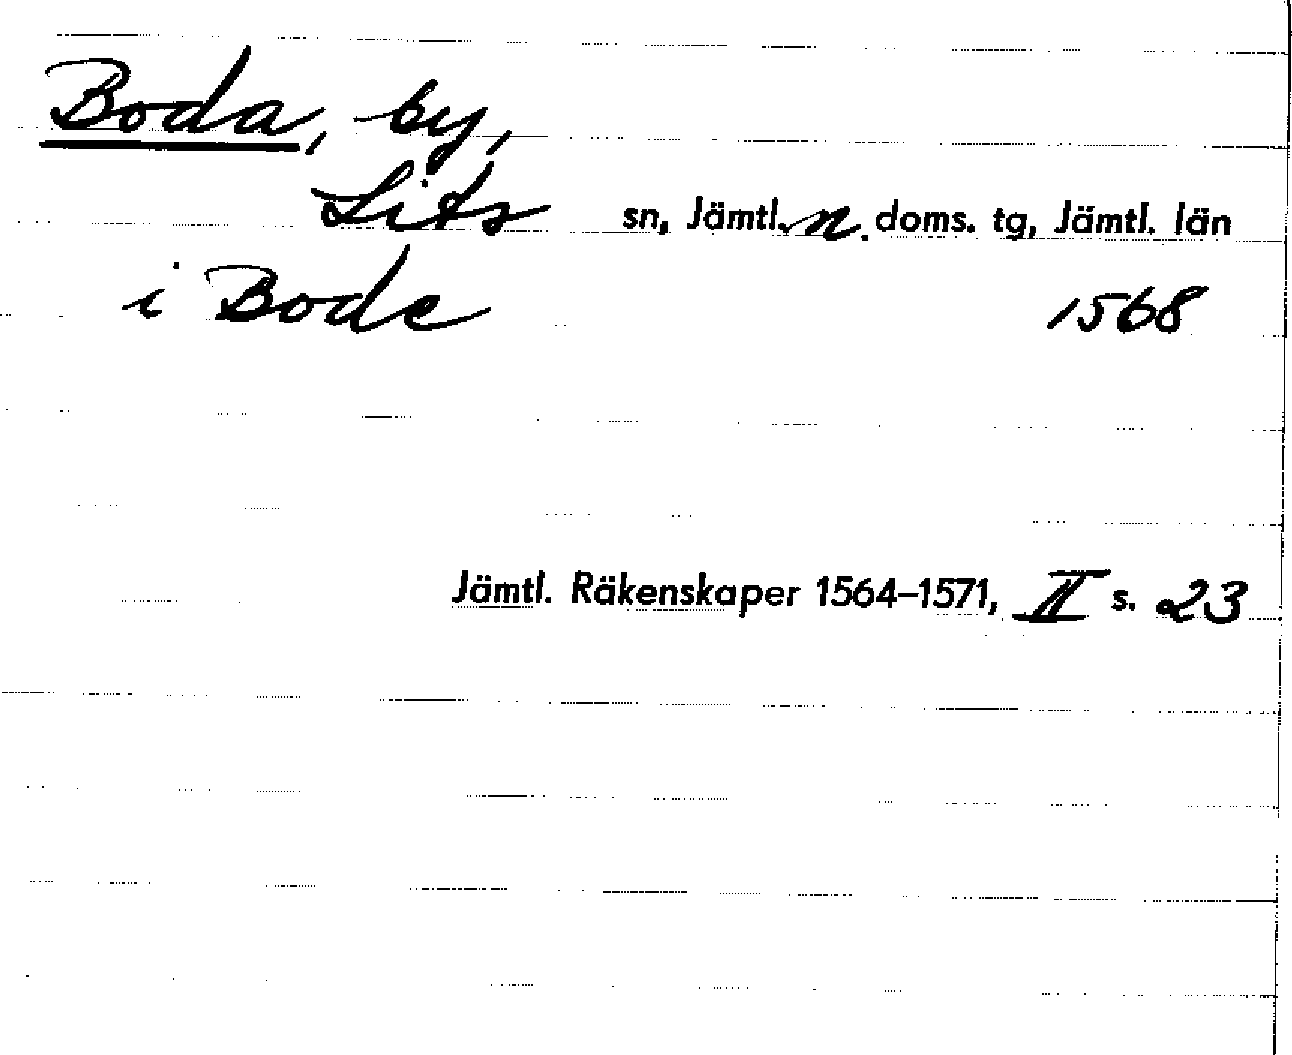 Boda, by,
Lits sn, Jämtl. n. doms. tg, Jämtl. län
i Bode 1568
Jämtl. Räkenskaper 1564–1571, II s. 23